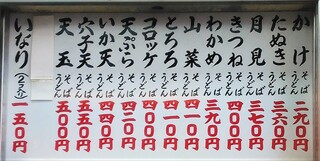 かけ そば うどん 二九〇円
たぬき そば うどん 三六〇円
月見 そば うどん 三七〇円
きつね そば うどん 四〇〇円
わかめ そば うどん 三九〇円
山菜 そば うどん 四一〇円
とろろ そば うどん 四一〇円
コロッケ そば うどん 四〇〇円
天ぷら そば うどん 四二〇円
いか天 そば うどん 四四〇円
穴子天 そば うどん 五五〇円
天玉 そば うどん 五〇〇円
いなり 一五〇円